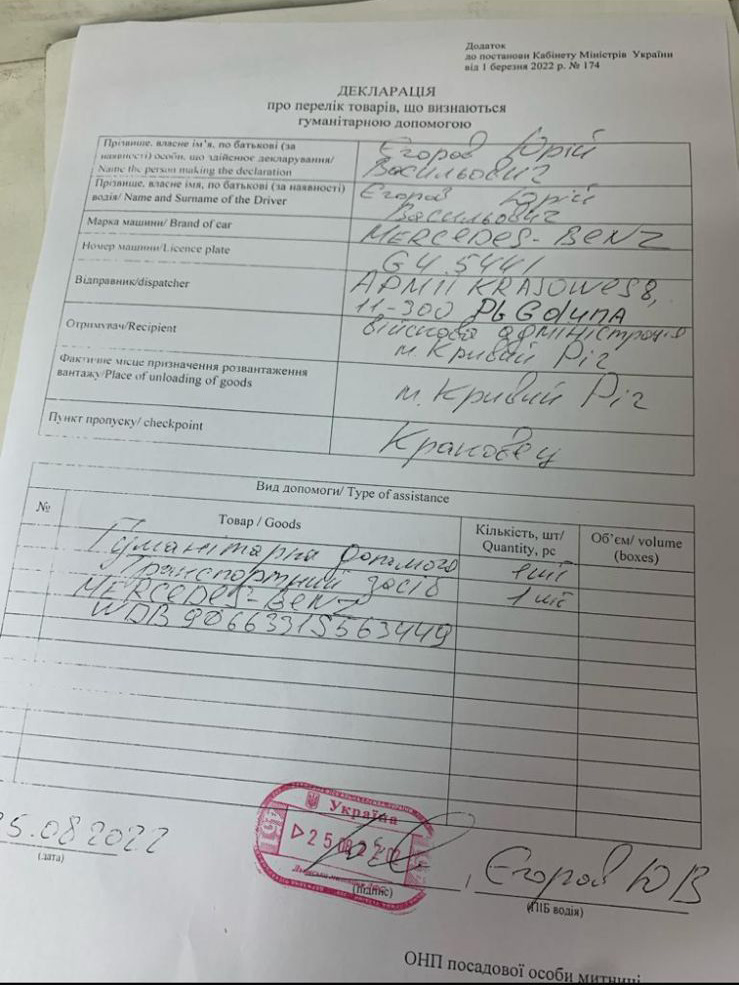 Додаток
до постанови Кабінету Міністрів України
від 1 березня 2022 р. № 174
ДЕКЛАРАЦІЯ
про перелік товарів, що визнаються
гуманітарною допомогою
Прізвище, власне ім’я, по батькові (за
наявності) особи, що здійснює декларування/
Name the person making the declaration
Єгоров Юрій
Васильович
Прізвище, власне імя, по батькові (за наявності)
водія/ Name and Surname of the Driver
Єгоров Юрій
Васильович
Марка машини/ Brand of car
MERCEDES-BENZ
Номер машини/Licence plate
G4 5441
Відправник/dispatcher
KRASOWE
11-300
Отримувач/Recipient
військова адміністрація
м. Кривий Ріг
Фактичне місце призначення розвантаження
вантажу/Place of unloading of goods
м. Кривий Ріг
Пункт пропуску/ checkpoint
Краковец
Вид допомоги/ Type of assistance
№
Товар / Goods
Кількість, шт/
Quantity, pc
Об’єм/ volume
(boxes)
Гуманітарна допомога
1 шт
Транспортний засіб
1 шт
MERCEDES-BENZ
WDB9066331S563449
5.08 2022
(дата)
Україна
(підпис)
Єгоров Ю В
(ПІБ водія)
ОНП посадової особи митниці